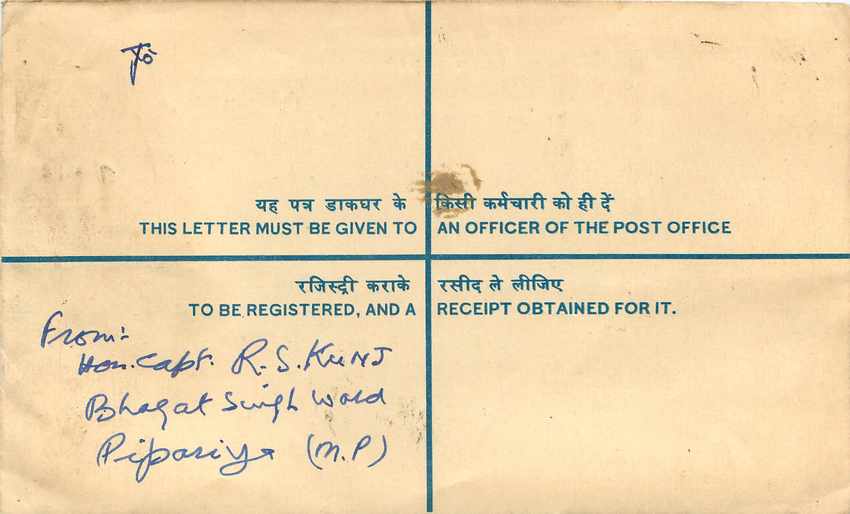 यह पत्र डाकघर के किसी कर्मचारी को ही दें
THIS LETTER MUST BE GIVEN TO AN OFFICER OF THE POST OFFICE
रजिस्ट्री कराके रसीद ले लीजिए
TO BE REGISTERED, AND A RECEIPT OBTAINED FOR IT.
From:-
Hon. Capt. R.S. KUNJ
Bhagat Singh Ward
Pipariya (M.P)